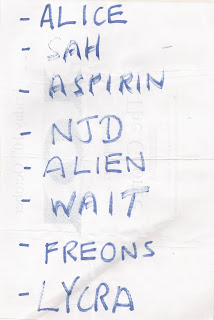 - ALICE
- SAH
- ASPIRIN
- NJD
- ALIEN
- WAIT
- FREONS
- LYCRA